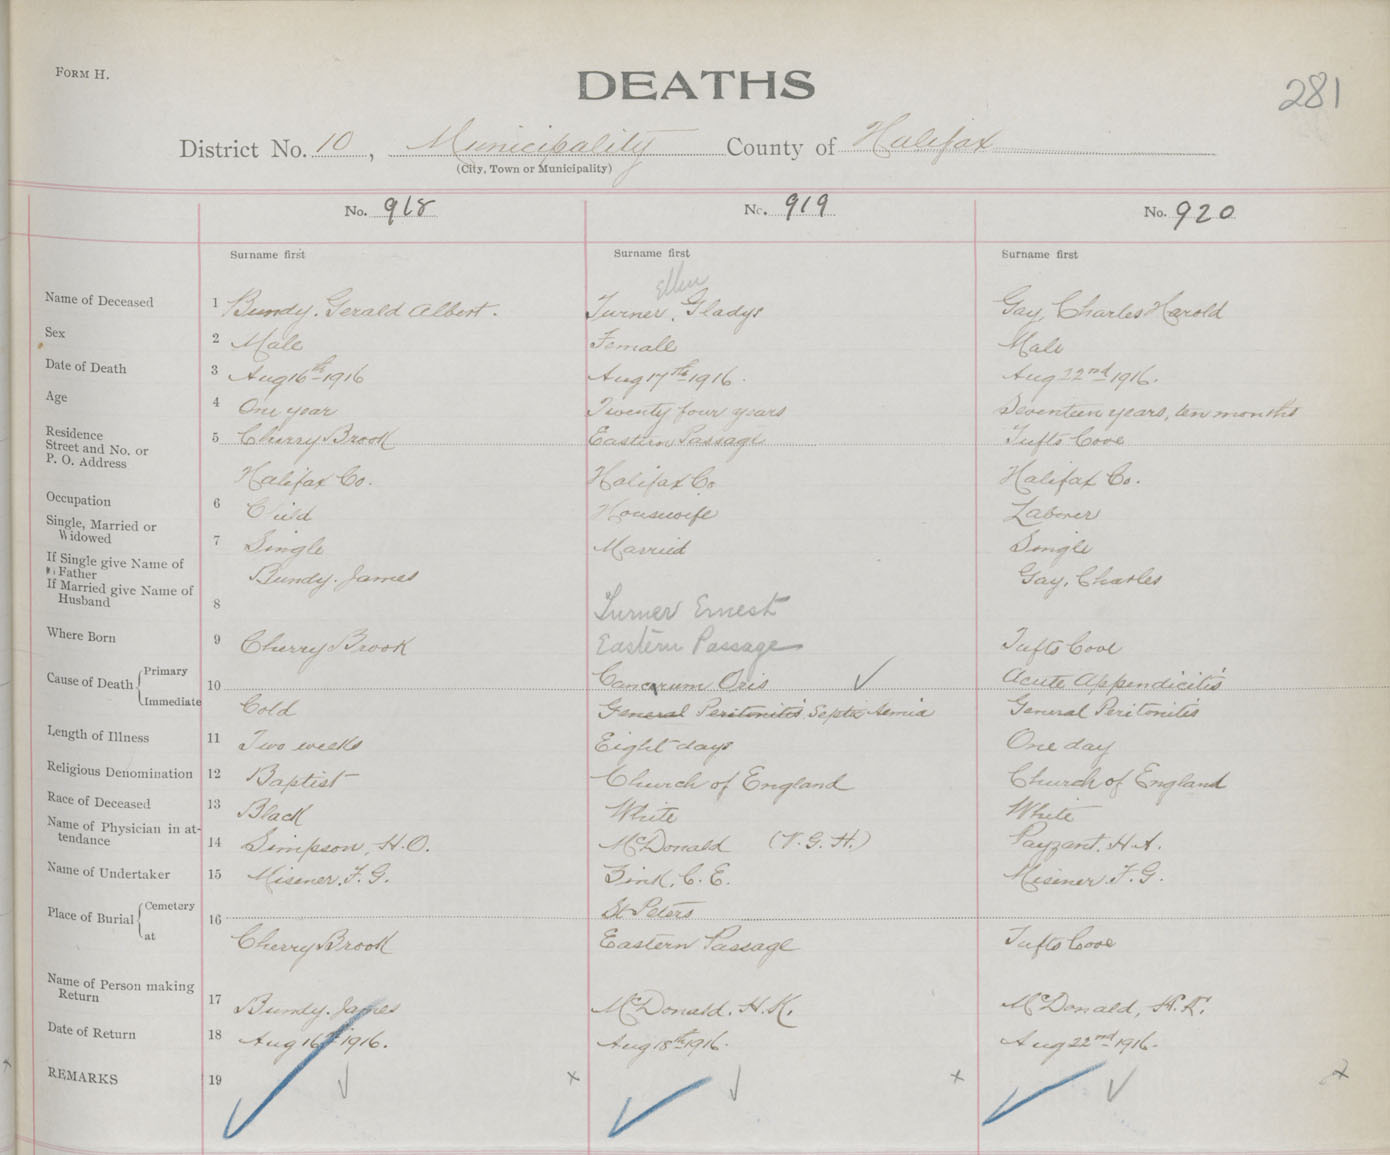 FORM H.
DEATHS
281
District No. 10, Municipality County of Halifax
(City, Town or Municipality)
No. 918 No. 919 No. 920
Surname first Surname first Surname first
Ellen
Name of Deceased 1 Bundy, Gerald Albert. Turner, Gladys Gay, Charles Harold
Sex 2 Male Female Male
Date of Death 3 Aug 16th 1916 Aug 17th 1916. Aug 22nd 1916.
Age 4 One year Twenty four years Seventeen years, ten months
Residence Street and No. or P. O. Address 5 Cherry Brook Eastern Passage Tufts Cove
Halifax Co. Halifax Co Halifax Co.
Occupation 6 Child Housewife Laborer
Single, Married or Widowed 7 Single Married Single
If Single give Name of Father Bundy. James Gay, Charles
If Married give Name of Husband 8 Turner Ernest
Where Born 9 Cherry Brook Eastern Passage Tufts Cove
Cause of Death Primary 10 Cancrum Oris Acute Appendicitis
Immediate Cold General Peritonitis Septicaemia General Peritonitis
Length of Illness 11 Two weeks Eight days One day
Religious Denomination 12 Baptist Church of England Church of England
Race of Deceased 13 Black White White
Name of Physician in attendance 14 Simpson, H.O. McDonald (V.G.H.) Payzant. H.A.
Name of Undertaker 15 Misener. F.G. Zink, C.E. Misener. F.G.
Place of Burial Cemetery 16 St Peters
at Cherry Brook Eastern Passage Tufts Cove
Name of Person making Return 17 Bundy. James McDonald. H.K. McDonald, H.K.
Date of Return 18 Aug 16th 1916. Aug 18th 1916. Aug 22nd 1916.
REMARKS 19 x x x